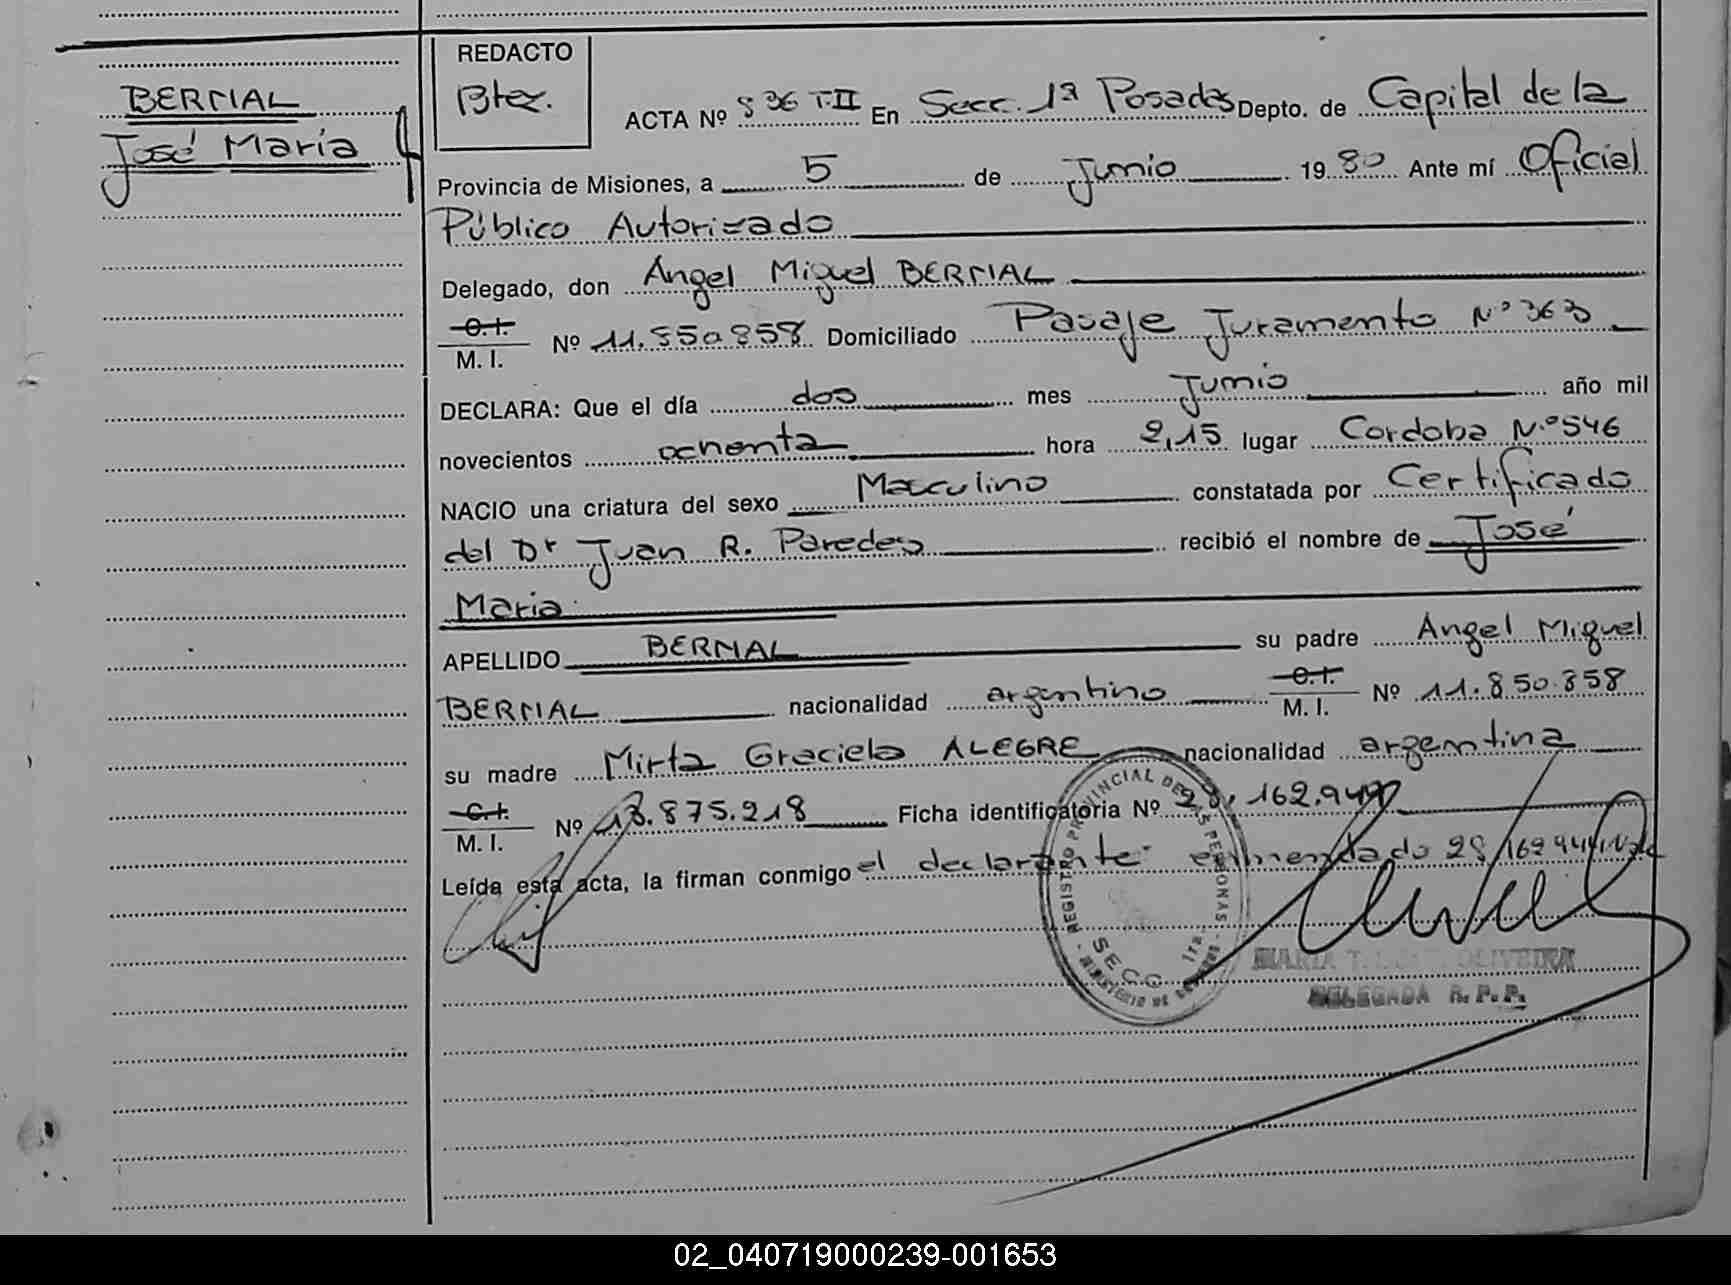 BERNAL
José María
REDACTO
Btez.
ACTA Nº 836 T.II En Secc. 1ª Posadas Depto. de Capital de la
Provincia de Misiones, a 5 de Junio 1980 Ante mí Oficial
Público Autorizado
Delegado, don Angel Miguel BERNAL
C.I.
M. I. Nº 11.850.858 Domiciliado Pasaje Juramento Nº 363
DECLARA: Que el día dos mes Junio año mil
novecientos ochenta hora 2,15 lugar Cordoba N.º 546
NACIO una criatura del sexo Masculino constatada por Certificado
del Dr Juan R. Paredes recibió el nombre de José
Maria
APELLIDO BERNAL su padre Angel Miguel
BERNAL nacionalidad argentino C.I.
M. I. Nº 11.850.858
su madre Mirta Graciela ALEGRE nacionalidad argentina
C.I.
M. I. Nº 13.875.218 Ficha identificatoria Nº 28.162.944
Leída esta acta, la firman conmigo el declarante enmendado 28.162.944 Vale
REGISTRO PROVINCIAL DE LAS PERSONAS
SECC. 1ra.
MINISTERIO DE
MARIA T. OLIVEIRA
DELEGADA R. P. P.
02_040719000239-001653